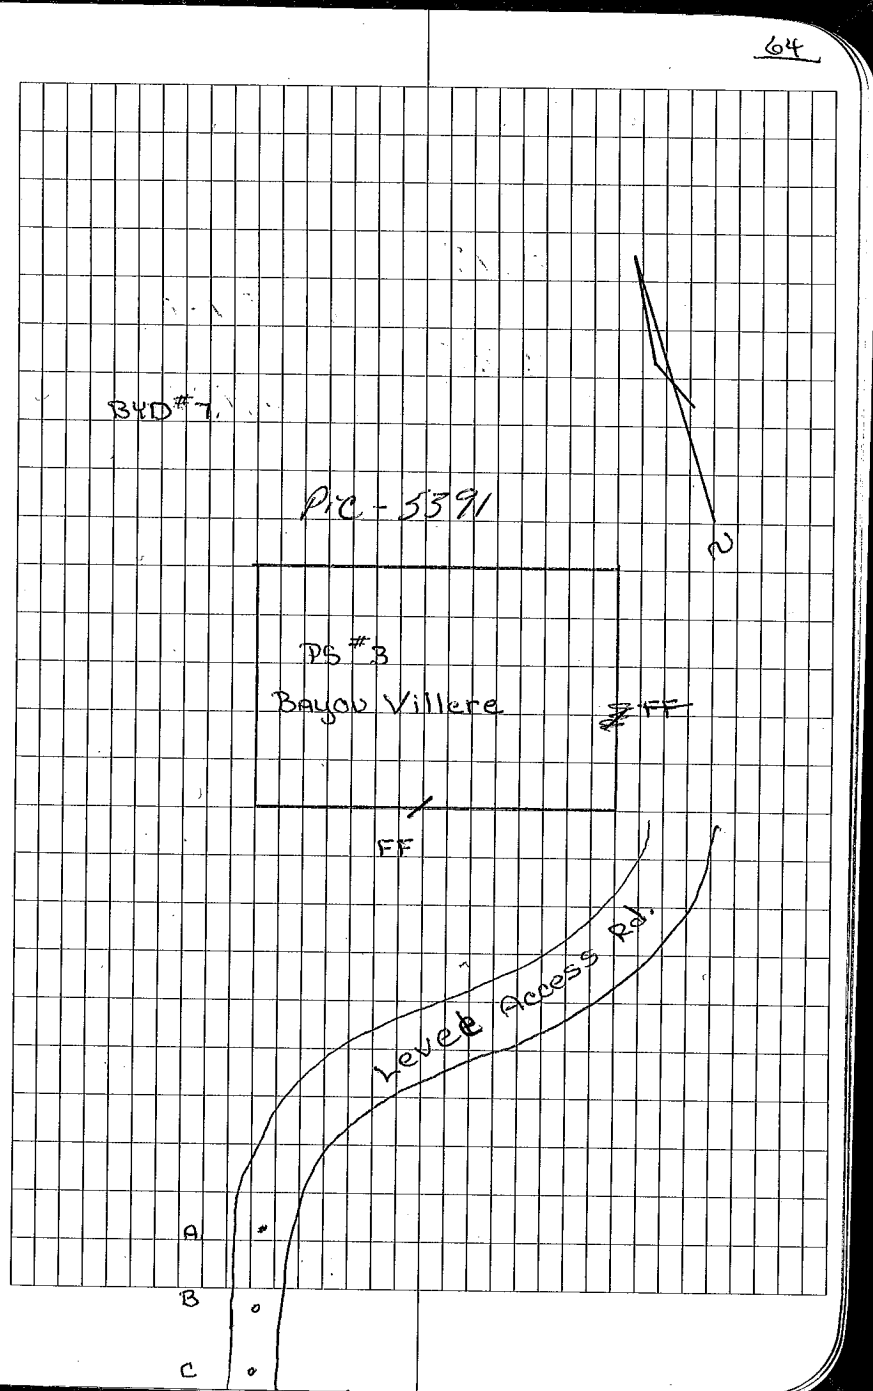 64
BYD#7
Pic - 5391
PS #3
Bayou Villere
FF
FF
Levee Access Rd.
N
A
B
C